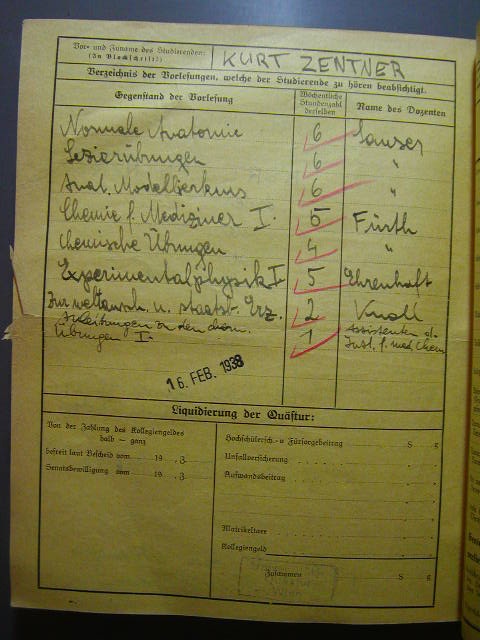 Vor- und Zuname des Studierenden: KURT ZENTNER
(In Blockschrift)
Verzeichnis der Vorlesungen, welche der Studierende zu hören beabsichtigt.
Gegenstand der Vorlesung Wöchentliche Stundenzahl derselben Name des Dozenten
Normale Anatomie 6
Sezierübungen 6 "
Anat. Modellierkurs 6 "
Chemie f. Mediziner I. 5 Fürth
Chemische Übungen 4 "
Experimentalphysik I 5 Ehrenhaft
Zur weltansch. u. staatsb. Erz. 2 Knoll
Anleitungen zu den chem. Assistenten d.
Übungen I. 1 Inst. f. med. Chem.
16. FEB. 1938
Liquidierung der Quästur:
Von der Zahlung des Kollegiengeldes
halb — ganz
befreit laut Bescheid vom 19 , Z.
Senatsbewilligung vom 19 , Z.
Hochschülersch.- u. Fürsorgebeitrag S g
Unfallversicherung
Aufwandsbeitrag
Matrikeltaxe
Kollegiengeld
Zusammen S g